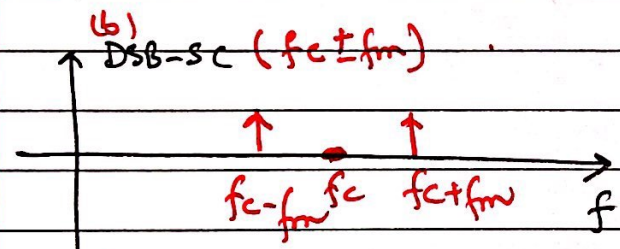 (b)
DSB-SC (fc±fm)
fc-fm fc fc+fm
f